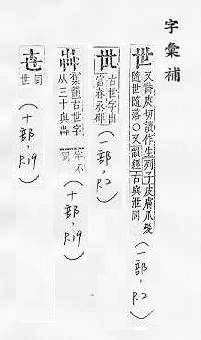 字彙補
世
又詩庚切讀作生列子皮膚爪髮
隨世隨落〇又韻經古與泄同
(一部，P.2)
世
古世字出
富春丞碑
(一部，P.2)
古世字
从三十與
不同
(十部，P.19)
同
世
(十部，P.19)